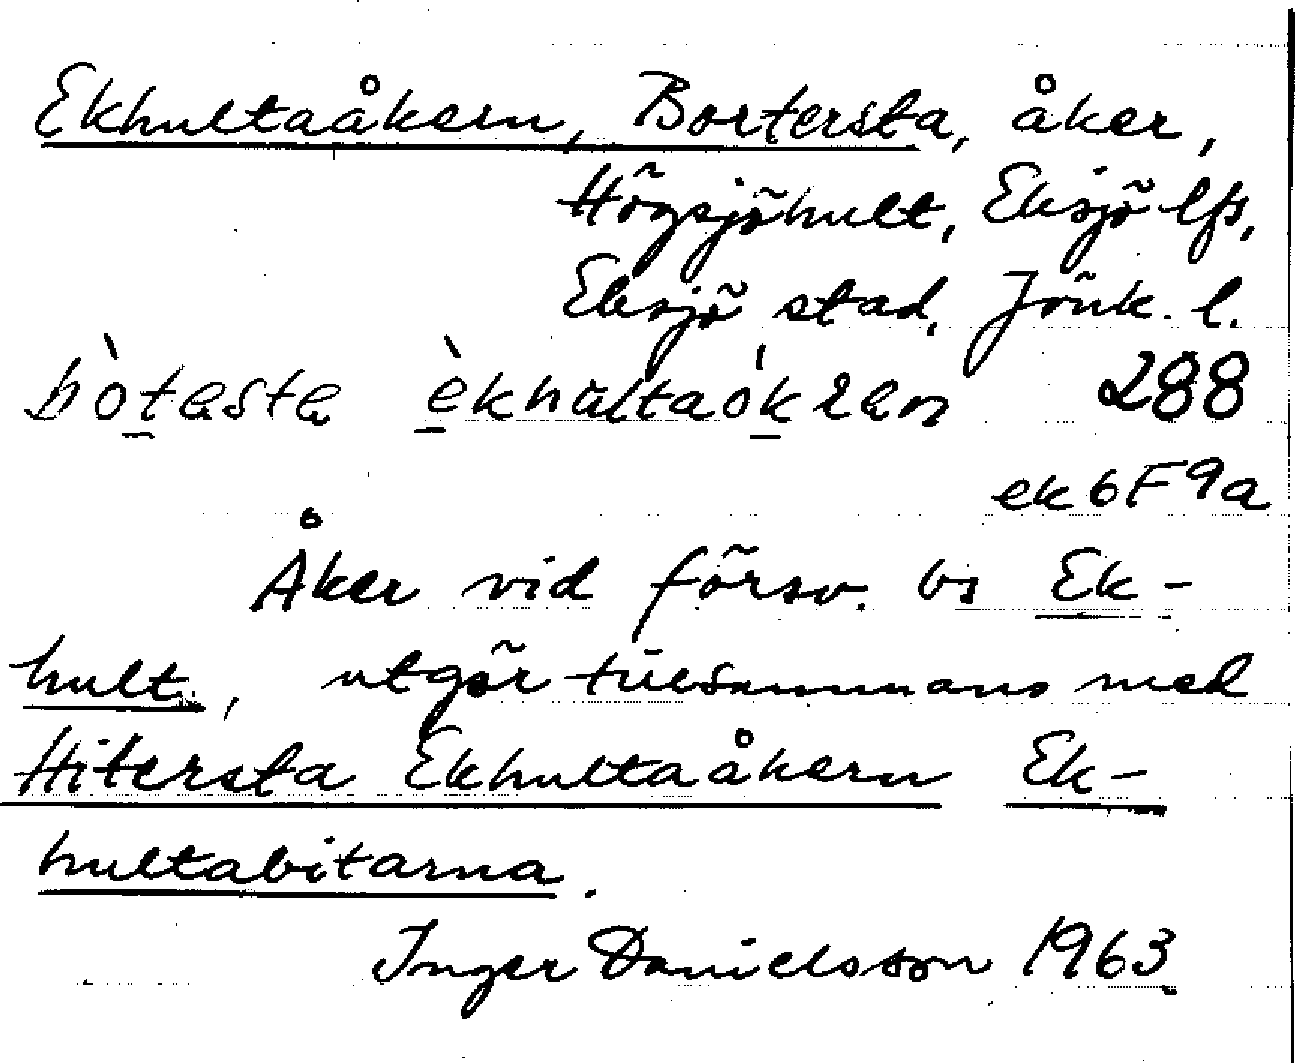 Ekhultaåkern, Bortersta, åker,
Högsjöhult, Eksjö lfs,
Eksjö stad, Jönk. l.
288
ek 6F9a
Åker vid försv. bs Ek-
hult, utgör tillsammans med
Hitersta Ekhultaåkern Ek-
hultabitarna.
Inger Danielsson 1963